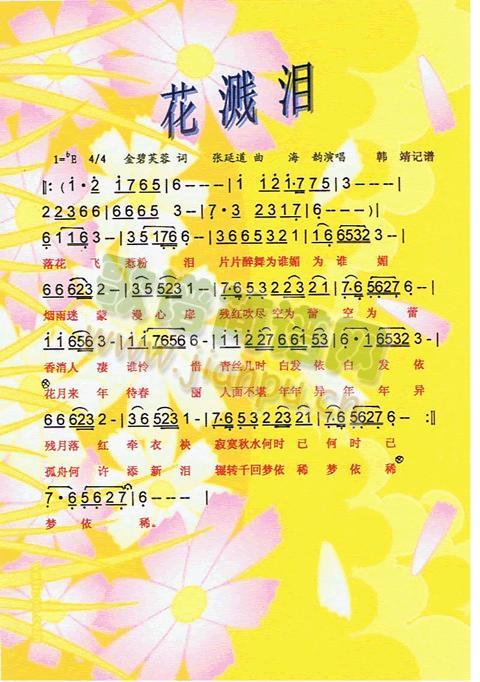 花溅泪
1=ᵇE 4/4 金碧芙蓉 词 张延道 曲 海 韵演唱 韩 靖记谱
‖: ( i · 2 i 7 6 5 | 6 - - - | i i 2 i · 7 7 5 | 3 - - - |
2 2 3 6 6 | 6 6 6 5 3 - | 7 · 3 2 3 1 7 | 6 - - - ) |
6 1 1 6 3 - | 3 5 1 7 6 6 - | 6 5 6 5 3 2 1 2 3 | 1 · 6 6 5 3 2 3 - |
落花 飞 愁粉 泪 片片醉舞为谁媚 为 谁 媚
6 6 6 2 3 2 - | 3 5 5 2 3 1 - | 7 · 6 5 3 2 2 2 2 | 7 · 6 5 6 2 7 6 - |
烟雨迷 蒙 漫心 扉 残红吹尽 空为 蕾 空 为 蕾
i i 6 5 6 3 - | i i 7 6 5 6 6 - |
香消人 凄 谁怜 惜 青丝几时 白发 依 白 发 依
花月来 年 待春 丽 人面不堪 年年 异 年 年 异
6 6 6 2 3 2 - | 3 6 5 2 3 1 - |
残月落 红 牵衣 袂 寂寞秋水何时 已 何 时 已
孤舟何 许 添新 泪 辗转千回梦依 稀 梦 依 稀
7 · 6 5 6 2 7 | 6 - - - | 6 - - - ‖
梦 依 稀。